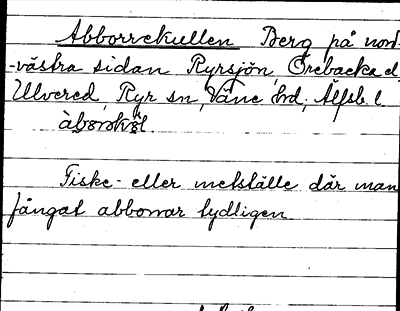 Abborrekullen Berg på nord-
-västra sidan Ryrsjön, Örebacka el.
Ulvered, Ryr sn, Väne hrd, Älfsb. l
Fiske- eller metställe där man
fångat abborrar tydligen